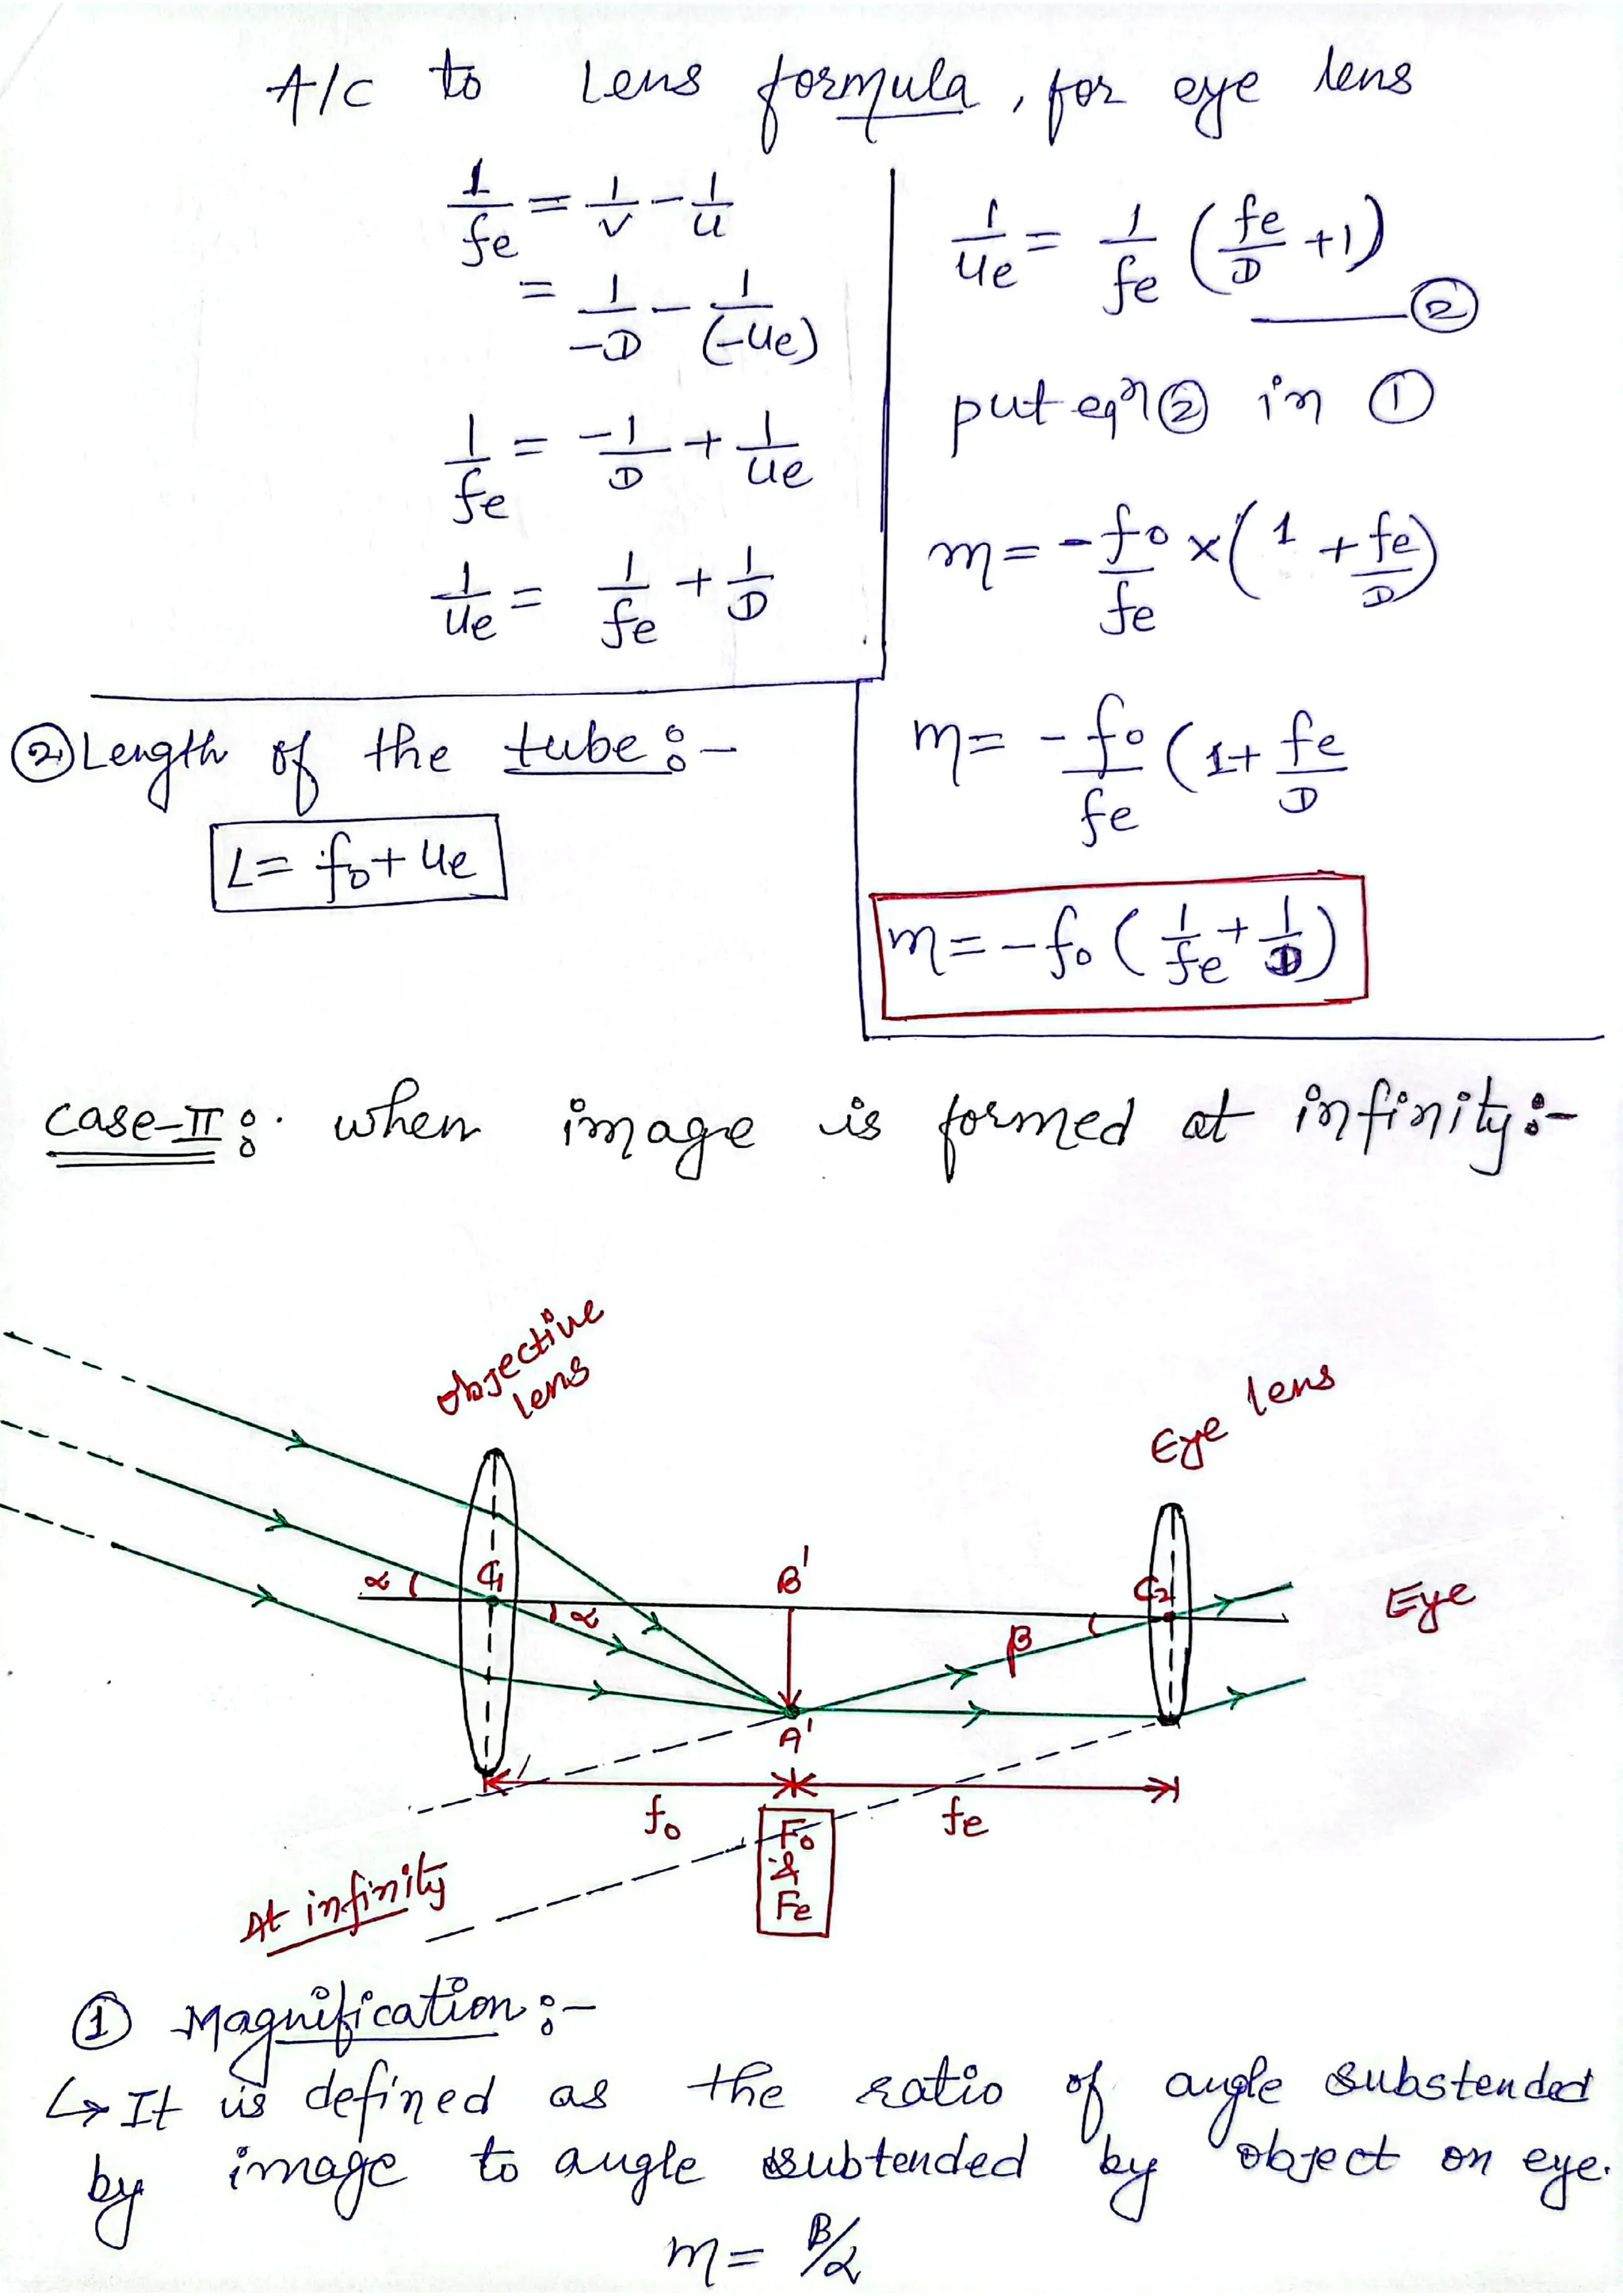 A/c to Lens formula, for eye lens
1/fe = 1/v - 1/u
= 1/-D - 1/(-ue)
1/fe = -1/D + 1/ue
1/ue = 1/fe + 1/D
1/ue = 1/fe (fe/D +1)
②
put eqn ② in ①
m = - fo/fe x (1 + fe/D)
m = - fo/fe (1+ fe/D
m = - fo (1/fe + 1/D)
② Length of the tube :-
L = fo + ue
case-II :. when image is formed at infinity :-
objective
lens
Eye lens
α C1 B' C2 Eye
α β
A'
fo fe
Fo
&
Fe
At infinity
① Magnification :-
↳ It is defined as the ratio of angle substended
by image to angle subtended by object on eye.
m = β/α